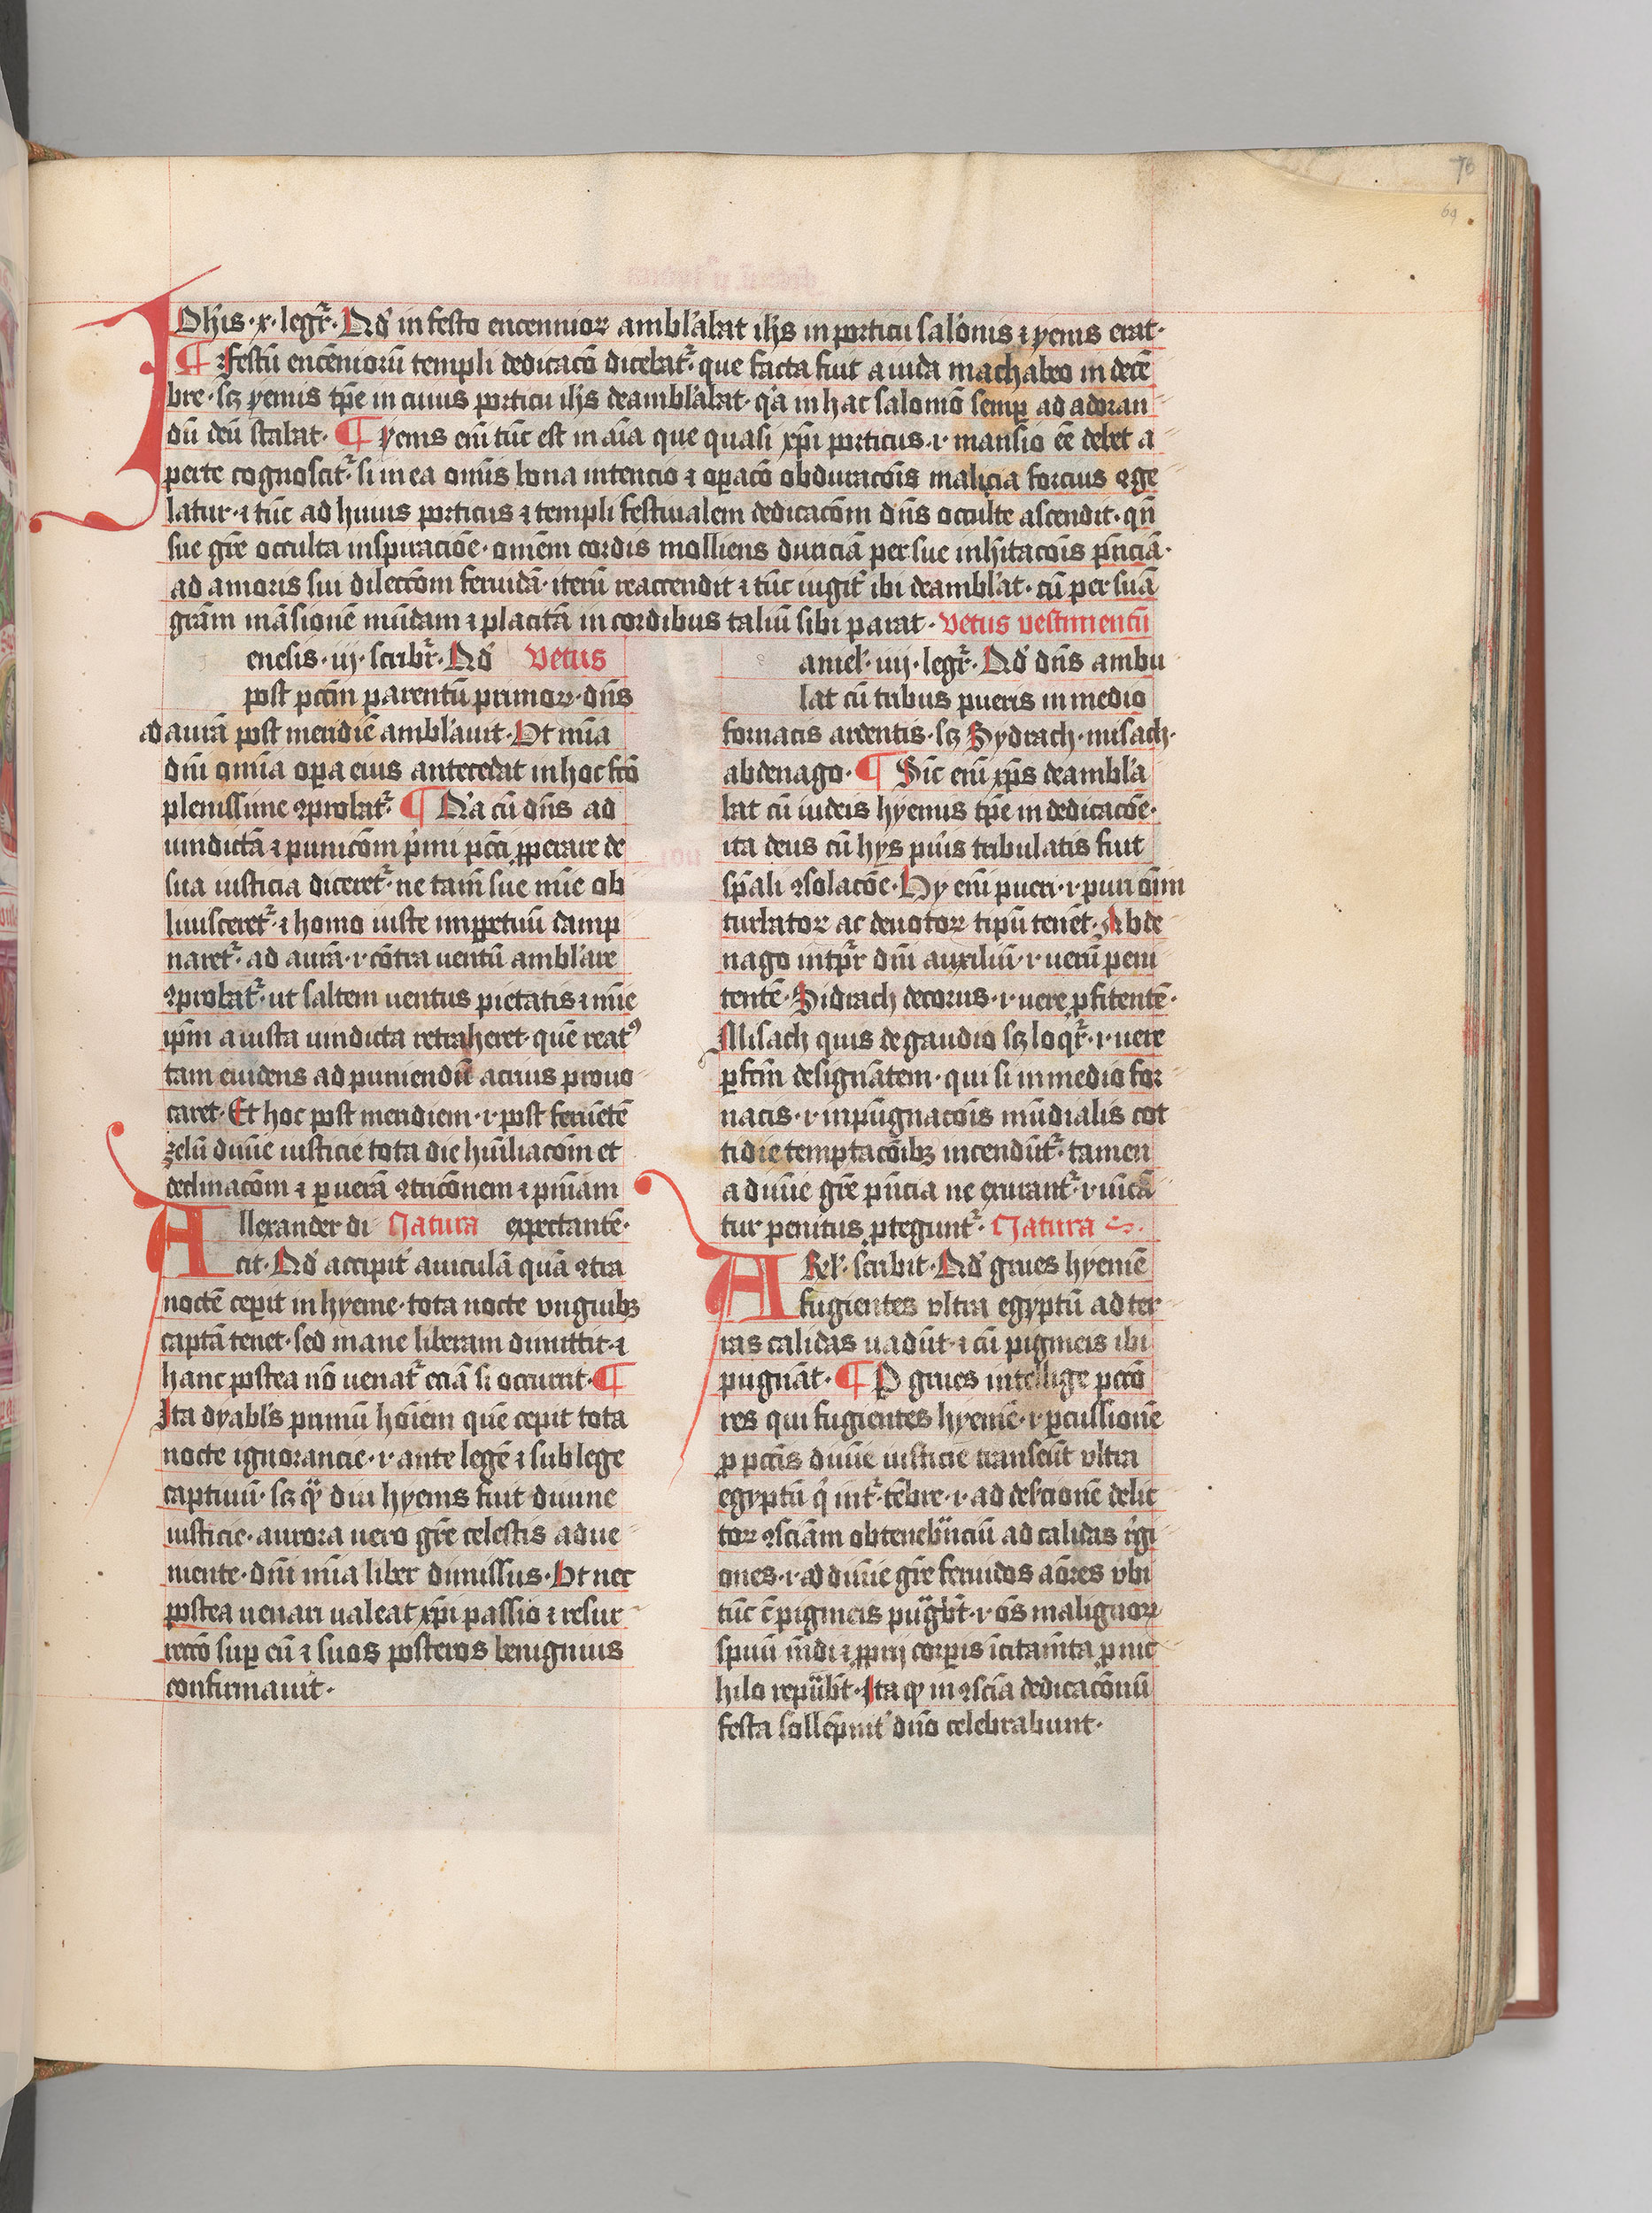 Joh̄is·x·legr̄· Qd̓ in festo encennioꝝ ambl̓abat ih̄s in porticu salōnis ⁊ yems erat·
¶ Festū encēniorū templi dedicacō dicebat᷑· que facta fuit a iuda machabeo in decē
bre· sꝫ yemis tp̄e in cuius porticu ih̄s deambl̓abat· q̓a in hac salomō semꝑ ad adoran
dū deū stabat· ¶ yems eni̅ tūc est in aīa que quasi xp̄i porticus·i· mansio eē debet a
perte cognoscit᷑· si in ea omīs bona intencio ⁊ oꝑacō obduracōīs malicia forcius ꝯge
latur· ⁊ tūc ad huius porticus ⁊ templi festiualem dedicacōm dn̄s occulte ascendit· qn̄
sue gr̄e occulta inspiracōe· omēm cordis molliens duriciā per sue inh̓itacōis pn̄ciā·
ad amoris sui dileccōm feruidā· iterū reaccendit ⁊ tūc iugit̓ ibi deambl̓at· cū per suā
grām māsionē mūdam ⁊ placitā in cordibus taliū sibi parat· Vetus vestimentū
enesis·iij·scribr̄· Qd̓ Vetus
post pccm̄ parentū primoꝝ· dn̄s
ad aurā post meridiē ambl̓auit· Ut mīa
dn̄i omīa oꝑa eius antecedat in hoc fc̄o
plenissime ꝯprobat᷑· ¶ Nā cū dn̄s ad
uindictā ⁊ punicōm pͥmi pcc̄i ꝓperare de
sua iusticia diceret᷑· ne tam̄ sue mīe ob
liuisceret᷑· ⁊ homo iuste imꝑpetuū damp
naret᷑· ad aurā·i· cōtra uentū ambl̓are
ꝯprobat᷑· ut saltem uentus pietatis ⁊ mīe
ip̄m a iusta uindicta retraheret· quē reatꝰ
tam euidens ad puniendū acrius prouo
caret· Et hoc post meridiem·i· post feruētē
zelū diuīe iusticie tota die hūiliacōm et
declinacōm ⁊ ꝑ uerā ꝯtricōnem ⁊ pn̄iam
Allexander di Natura expectantē·
cit· Qd̓ accipit̓ auiculā quā ꝯtra
noctē cepit in hyeme· tota nocte unguibꝫ
captā tenet· sed mane liberam dimittit· ⁊
hanc postea nō uenat᷑ eciā si occurrit· ¶
Ita dyabl̓s primū hoīem quē cepit tota
nocte ignorancie·i· ante legē ⁊ sub lege
captiuū· sꝫ qͣ̄diu hyems fuit diuine
iusticie· aurora uero gr̄e celestis adue
niente· dn̄i mīa liber dimissus· Ut nec
postea uenari ualeat xp̄i passio ⁊ resur
reccō suꝑ eū ⁊ suos posteros benignius
confirmauit·
aniel·iiij·legr̄· Qd̓ dn̄s ambu
lat cū tribus pueris in medio
fornacis ardentis· sꝫ Sydrach· misach·
abdenago· ¶ Sic eni̅ xp̄s deambl̓a
bat cū iudeis hyemis tp̄e in dedicacōe·
ita deus cū hys pūis tribulatis fuit
sp̄ali ꝯsolacōe· Hy eni̅ pueri·i· puri oīm
turbatoꝝ ac deuotoꝝ tipū tenēt· Abde
nago intp̄r dn̄i auxiliū·i· uerū peni
tentē· Sidrach decorus·i· uere ꝓfitentē·
Misach quis de gaudio sꝫ loqr̄·i· uere
ꝑfcm̄ designātem· qui si in medio for
nacis·i· inpūgnacōis mūdialis cot
tidie temptacōibꝫ incendūt᷑· tamen
a diuīe gr̄e pn̄cia ne exurant᷑·i· uīca
tur penitus ꝓtegunt᷑· Natura
ARel̓· scribit· Qd̓ grues hyemē
fugientes vltra egyptū ad ter
ras calidas uadūt· ⁊ cū pigmeis ibi
pugnāt· ¶ P grues intellige pccō
res qui fugientes hyemē·i· ꝑcussionē
ꝓ pccīs diuīe iusticie transeūt vltra
egyptū q̓ int᷑· tēbre·i· ad desc̄ionē delic
toꝝ ꝯsciām obtenebrāciū ad calidas rͤgi
ones·i· ad diuīe gr̄e feruidos aōres vbi
tūc c̄ pigmeis pūgbt̄·i· oīs malignoꝝ
spūū mūdi ⁊ ꝓprij corꝑis īcitamīta ꝓ nic
hilo reputabt̄· Itaqͦ in ꝯscīa dedicacōnū
festa sollēpnit̓ dn̄o celebrabunt·
70
69